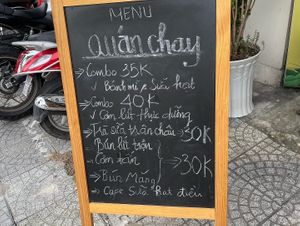 MENU
Quán chay
→ Combo 35K
✓ Bánh mì + Sữa hạt
→ Combo 40K
✓ Cơm lứt thực dưỡng
→ Trà sữa trân châu → 30K
→ Bún lứt trộn
→ Cơm → 30K
→ Bún Măng
→ Cafe Sữa Hạt điều